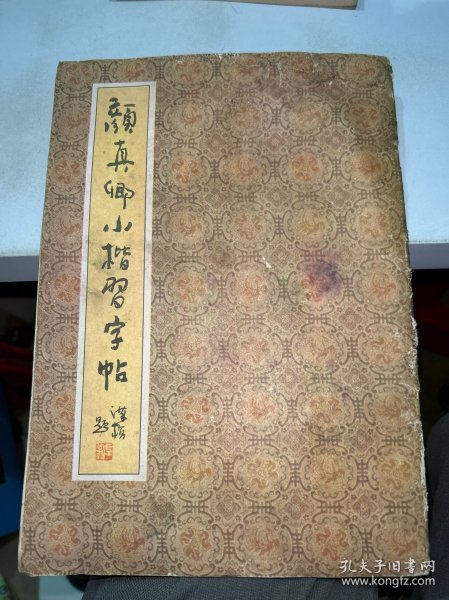 颜真卿小楷習字帖
题
孔夫子旧书网
www.kongfz.com